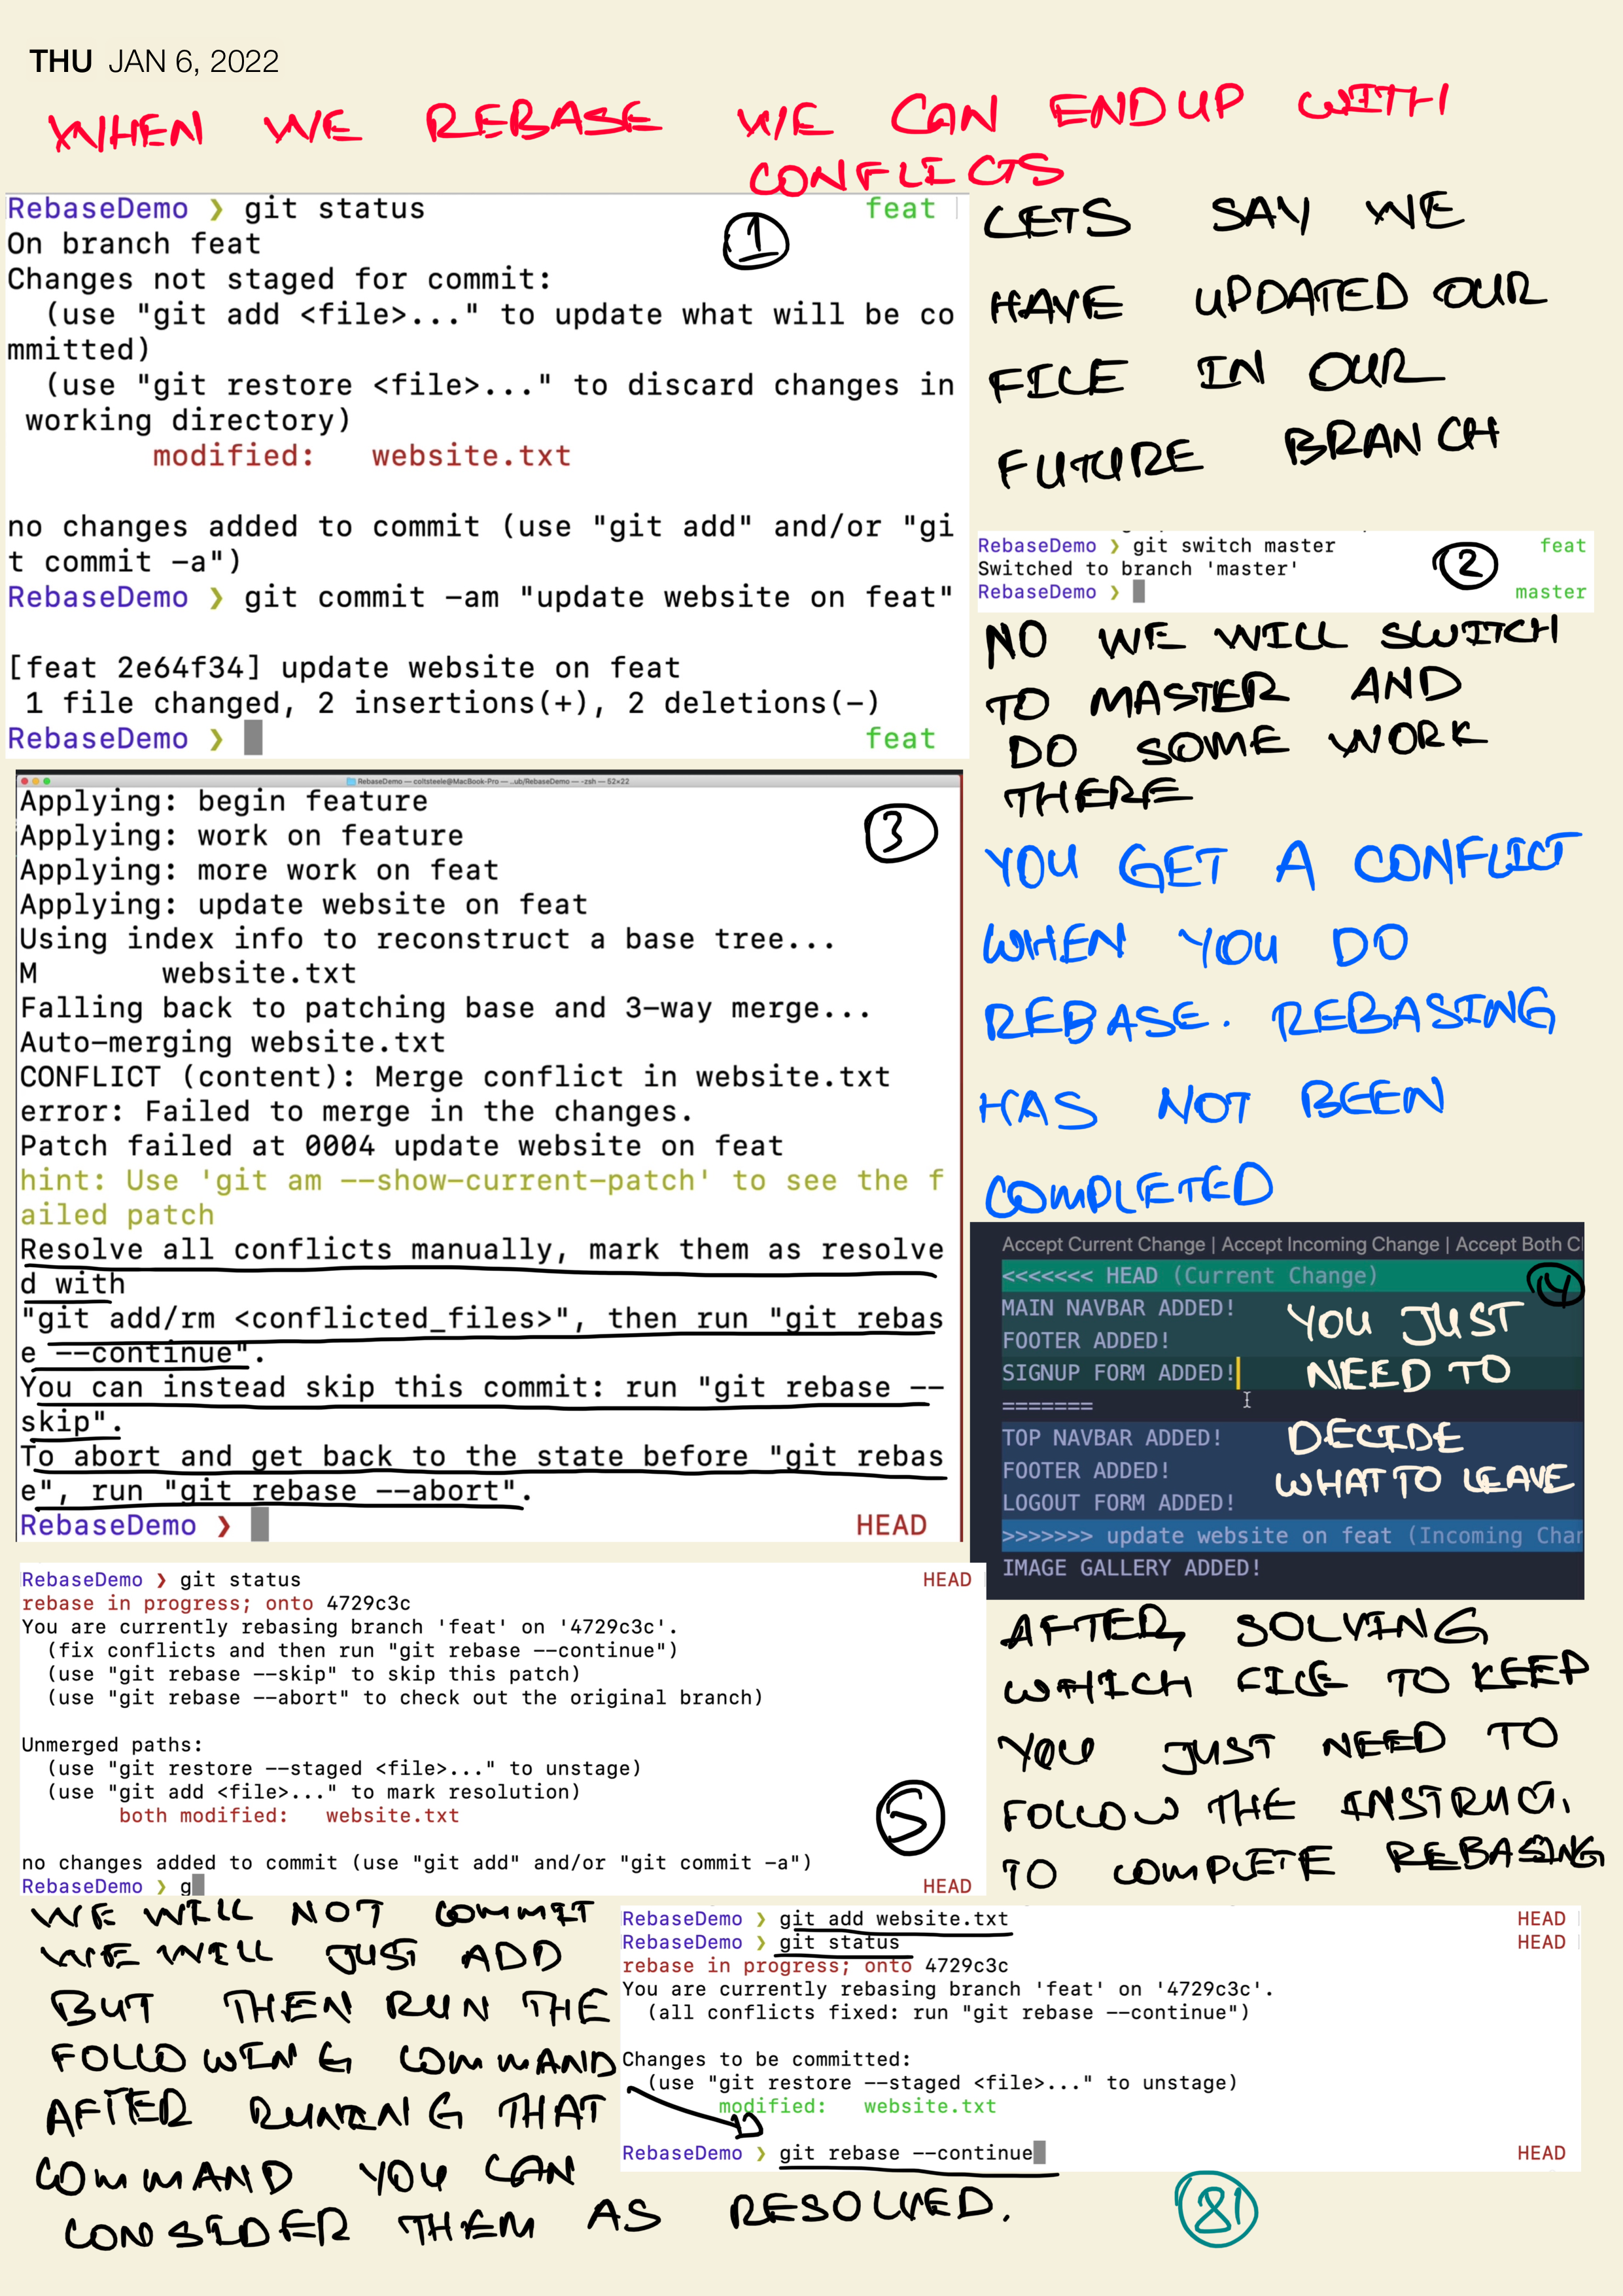 THU JAN 6, 2022
WHEN WE REBASE WE CAN ENDUP WITH
CONFLICTS
RebaseDemo ❯ git status feat
On branch feat
Changes not staged for commit:
(use "git add <file>..." to update what will be co
mmitted)
(use "git restore <file>..." to discard changes in
working directory)
modified: website.txt
no changes added to commit (use "git add" and/or "gi
t commit -a")
RebaseDemo ❯ git commit -am "update website on feat"
[feat 2e64f34] update website on feat
1 file changed, 2 insertions(+), 2 deletions(-)
RebaseDemo ❯ feat
1
LETS SAY WE
HAVE UPDATED OUR
FILE IN OUR
FUTURE BRANCH
RebaseDemo ❯ git switch master feat
Switched to branch 'master'
RebaseDemo ❯ master
2
NO WE WILL SWITCH
TO MASTER AND
DO SOME WORK
THERE
RebaseDemo — coltsteele@MacBook-Pro — ..ub/RebaseDemo — -zsh — 52×22
Applying: begin feature
Applying: work on feature
Applying: more work on feat
Applying: update website on feat
Using index info to reconstruct a base tree...
M website.txt
Falling back to patching base and 3-way merge...
Auto-merging website.txt
CONFLICT (content): Merge conflict in website.txt
error: Failed to merge in the changes.
Patch failed at 0004 update website on feat
hint: Use 'git am --show-current-patch' to see the f
ailed patch
Resolve all conflicts manually, mark them as resolve
d with
"git add/rm <conflicted_files>", then run "git rebas
e --continue".
You can instead skip this commit: run "git rebase --
skip".
To abort and get back to the state before "git rebas
e", run "git rebase --abort".
RebaseDemo ❯ HEAD
3
YOU GET A CONFLICT
WHEN YOU DO
REBASE. REBASING
HAS NOT BEEN
COMPLETED
Accept Current Change | Accept Incoming Change | Accept Both C
<<<<<<< HEAD (Current Change)
MAIN NAVBAR ADDED!
FOOTER ADDED!
SIGNUP FORM ADDED!
=======
TOP NAVBAR ADDED!
FOOTER ADDED!
LOGOUT FORM ADDED!
>>>>>>> update website on feat (Incoming Char
IMAGE GALLERY ADDED!
4
YOU JUST
NEED TO
DECIDE
WHAT TO LEAVE
RebaseDemo ❯ git status HEAD
rebase in progress; onto 4729c3c
You are currently rebasing branch 'feat' on '4729c3c'.
(fix conflicts and then run "git rebase --continue")
(use "git rebase --skip" to skip this patch)
(use "git rebase --abort" to check out the original branch)
Unmerged paths:
(use "git restore --staged <file>..." to unstage)
(use "git add <file>..." to mark resolution)
both modified: website.txt
no changes added to commit (use "git add" and/or "git commit -a")
RebaseDemo ❯ g HEAD
5
AFTER SOLVING
WHICH FILE TO KEEP
YOU JUST NEED TO
FOLLOW THE INSTRUCT.
TO COMPLETE REBASING
WE WILL NOT COMMIT
WE WILL JUST ADD
BUT THEN RUN THE
FOLLOWING COMMAND
AFTER RUNING THAT
COMMAND YOU CAN
CONSIDER THEM AS RESOLVED.
RebaseDemo ❯ git add website.txt HEAD
RebaseDemo ❯ git status HEAD
rebase in progress; onto 4729c3c
You are currently rebasing branch 'feat' on '4729c3c'.
(all conflicts fixed: run "git rebase --continue")
Changes to be committed:
(use "git restore --staged <file>..." to unstage)
modified: website.txt
RebaseDemo ❯ git rebase --continue HEAD
81